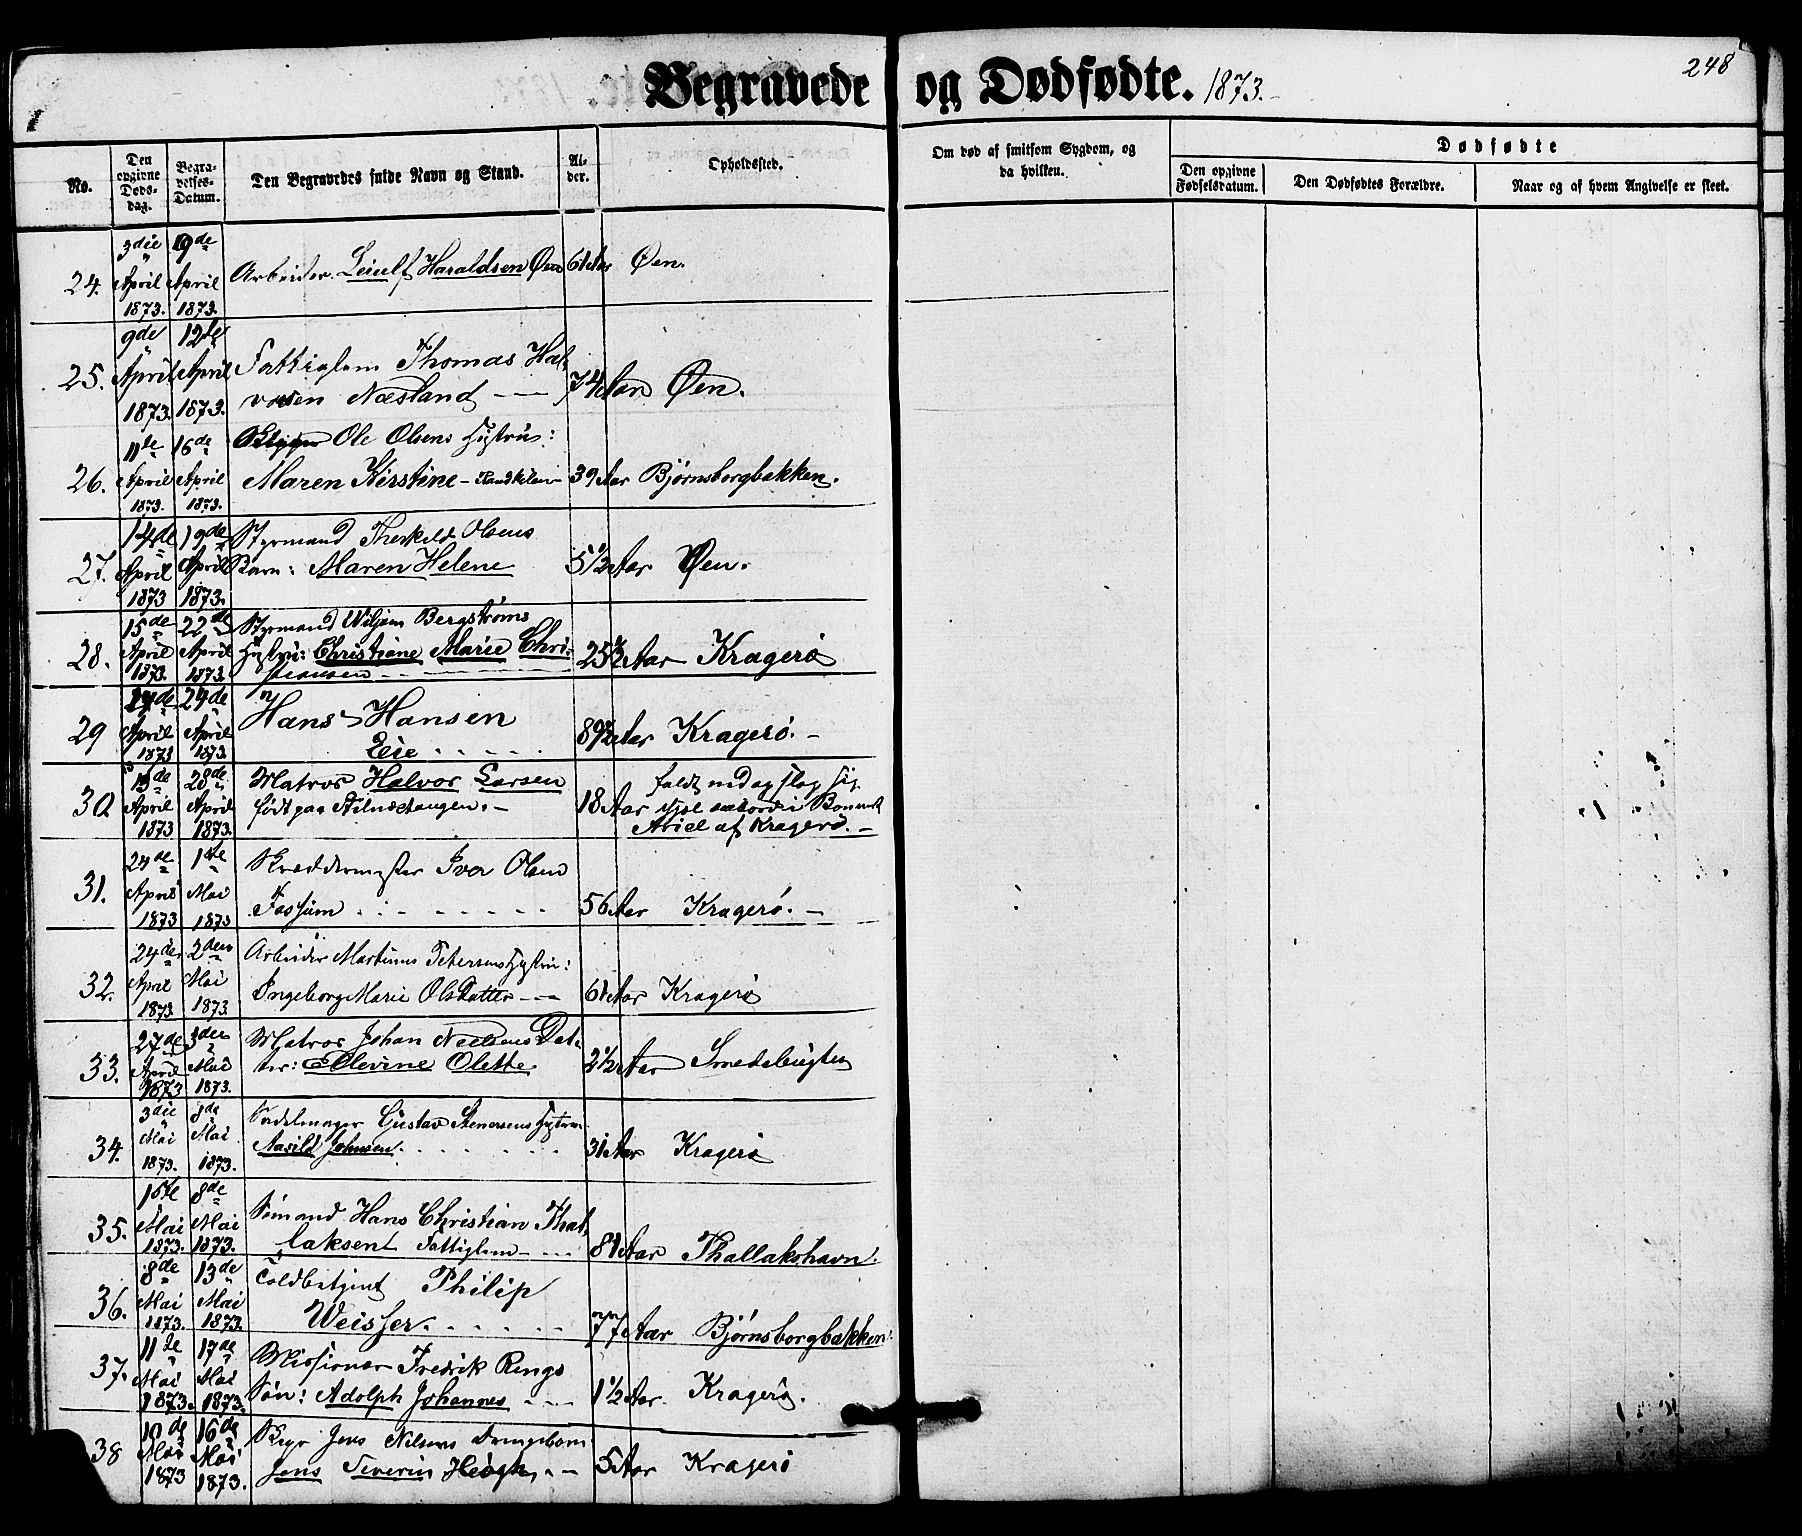 Begravede og Dødfødte. 1873.
248
No.
Den opgivne Døds-dag.
Begra-velses-Datum.
Den Begravedes fulde Navn og Stand.
Al-der.
Opholdssted.
Om død af smitsom Sygdom, og da hvilken.
Dødfødte
Den opgivne Fødselsdatum.
Den Dødfødtes Forældre.
Naar og af hvem Angivelse er skeet.
24. 3die April 1873. 9de April 1873. Arbeider Leiulf Haraldsen Øen 61 Aar Øen.
25. 9de April 1873. 12te April 1873. Fattiglem Thomas Hal-
vorsen Næsland 74 Aar Øen.
26. 11te April 1873. 16de April 1873. Ole Olsens Hustru:
Maren Kirstine 39 Aar Bjørnsborgbakken.
27. 14de April 1873 19de April 1873. Styrmand Therkild Olsens
Barn: Maren Helene 5 1/2 Aar Øen.
28. 15de April 1873 22de April 1873. Styrmand Wiljam Bergstrøms
Hustru: Christiane Marie Chri-
stiansen 25 1/2 Aar Kragerø
29 April 1873 24de April 1873. Hans Hansen
Eie 89 1/2 Aar Kragerø.
30 April 1873 28de April 1873. Matros Halvor Larsen
født paa 18 Aar faldt ned og slog sig
ihjel ombord i
Ariel af Kragerø.
31. 24de April 1873 1ste Mai 1873 Skræddermester Iver Olsen
Fossum 56 Aar Kragerø.
32. 24de April 1873 2den Mai 1873. Arbeider Martinus Petersens Hustru:
Ingeborg Marie Olsdatter 61 Aar Kragerø
33. 27de April 1873 3die Mai 1873. Matros Johan Nielsens Dat-
ter: Ellevine Olette. 2 1/2 Aar Smedsbugten
34. 3die Mai 1873. 8de Mai 1873. Sadelmager Gustav Stenersens Hustru
Aasild Johnsen. 31 Aar Kragerø
35. 1ste Mai 1873. 8de Mai 1873. Sømand Hans Christian Thal-
laksen Fattiglem 81 Aar Thallakshavn.
36. 8de Mai 1873. 13de Mai 1873. Toldbetjent Philip
Weisser. 77 Aar Bjørnsborgbakken.
37. 11te Mai 1873. 17de Mai 1873. Missionær Fredrik Rings
Søn: Adolph Johannes 1 1/2 Aar. Kragerø.
38 Mai 1873 16de Mai 1873. Jens Nilsens
Jens Severin 5 Aar Kragerø